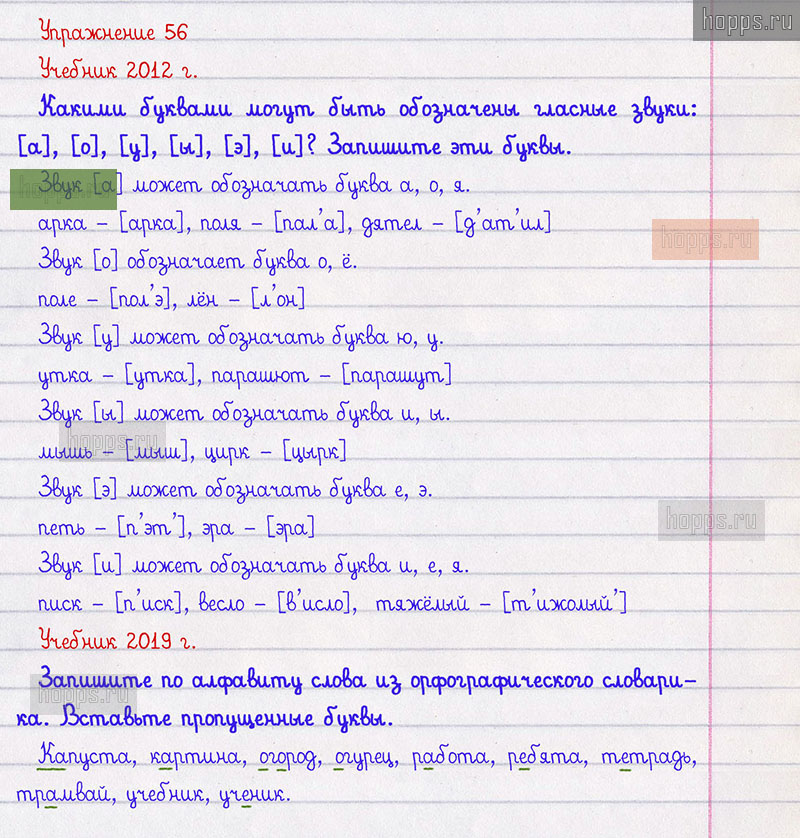 hopps.ru
Упражнение 56
Учебник 2012 г.
Какими буквами могут быть обозначены гласные звуки:
[а], [о], [у], [ы], [э], [и]? Запишите эти буквы.
Звук [а] может обозначать буква а, о, я.
hopps.ru
арка – [арка], поля – [пал’а], дятел – [д’ат’ил]
hopps.ru
Звук [о] обозначает буква о, ё.
поле – [пол’э], лён – [л’он]
Звук [у] может обозначать буква ю, у.
утка – [утка], парашют – [парашут]
Звук [ы] может обозначать буква и, ы.
hopps.ru
мышь – [мыш], цирк – [цырк]
Звук [э] может обозначать буква е, э.
hopps.ru
петь – [п’эт’], эра – [эра]
Звук [и] может обозначать буква и, е, я.
писк – [п’иск], весло – [в’исло], тяжёлый – [т’ижолый’]
Учебник 2019 г.
Запишите по алфавиту слова из орфографического словари–
hopps.ru
ка. Вставьте пропущенные буквы.
Капуста, картина, огород, огурец, работа, ребята, тетрадь,
трамвай, учебник, ученик.